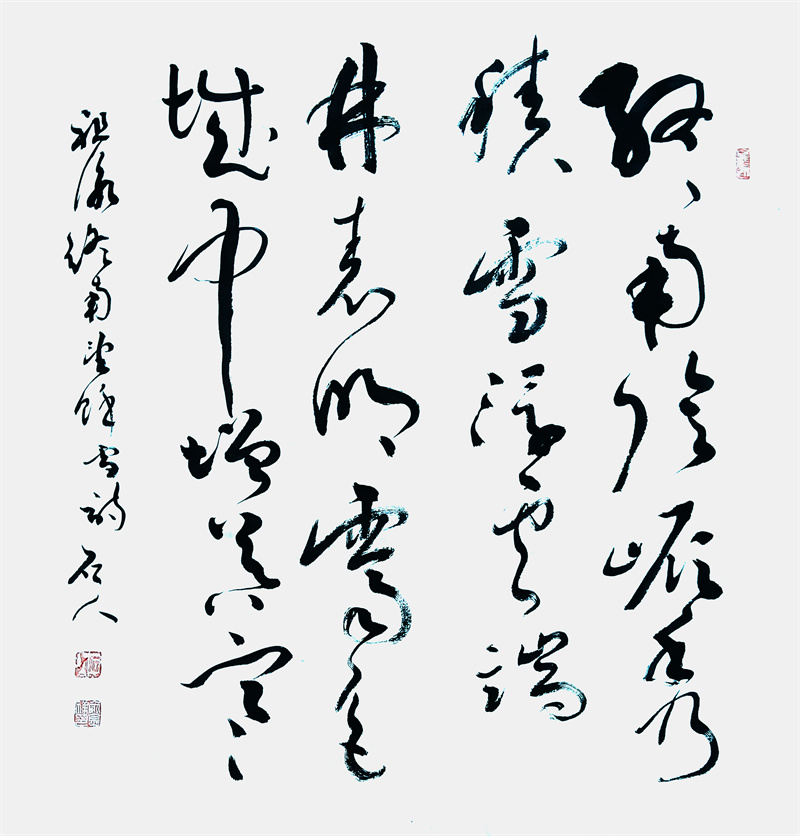 終南陰嶺秀
積雪浮雲端
林表明霽色
城中增暮寒
祖詠終南望餘雪詩 石人